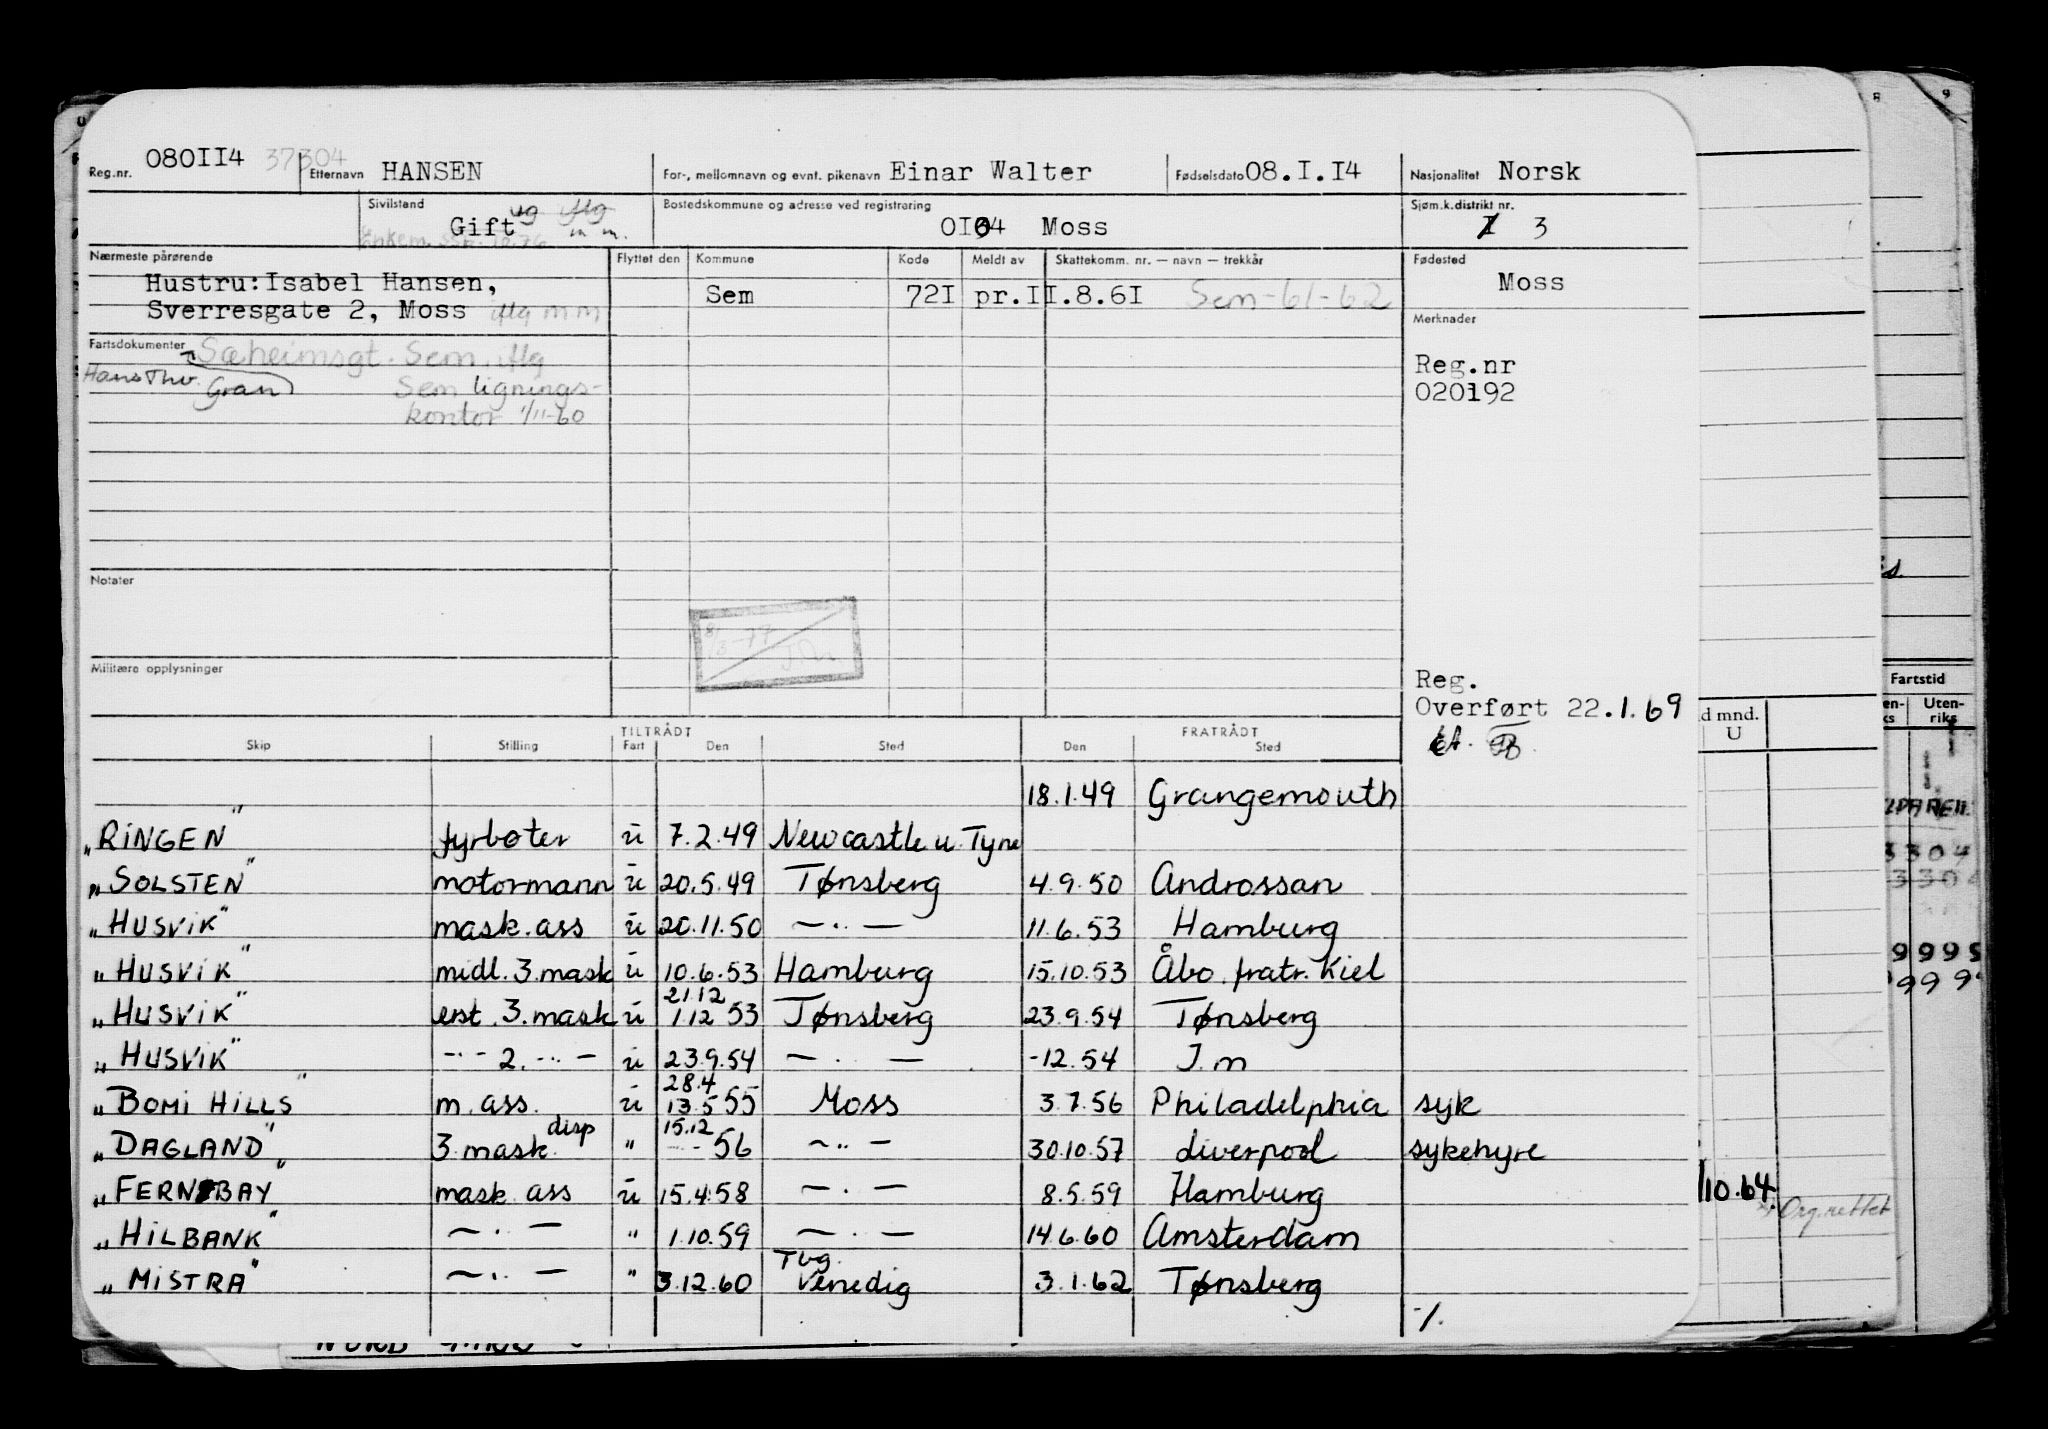 Reg.nr. 080II4 37304 Etternavn HANSEN For-, mellomnavn og evnt. pikenavn Einar Walter Fødselsdato 08.I.I4 Nasjonalitet Norsk
Sivilstand Gift ug iflg m m. Bostedskommune og adresse ved registrering OI04 Moss Sjøm.k.distrikt nr. 3
Enkem.
Nærmeste pårørende Flyttet den Kommune Kode Meldt av Skattekomm. nr. — navn — trekkår Fødested
Hustru: Isabel Hansen, Sem 72I pr.II.8.6I Sem-61-62 Moss
Sverresgate 2, Moss iflg m m
Merknader
Fartsdokumenter Sæheimsgt. Sem. iflg
Hans Thv. Gran Sem lignings-
kontor 1/11-60
Reg.nr
020192
Notater
8/3-77
Militære opplysninger
Reg.
Overført 22.1.69
TILTRÅDT FRATRÅDT
Skip Stilling Fart Den Sted Den Sted
18.1.49 Grangemouth
"RINGEN" fyrbøter u 7.2.49 Newcastle u. Tyne
"SOLSTEN" motormann u 20.5.49 Tønsberg 4.9.50 Androssan
"HUSVIK" mask.ass u 20.11.50 — .. — 11.6.53 Hamburg
"HUSVIK" midl. 3.mask u 10.6.53 Hamburg 15.10.53 Åbo. fratr. Kiel
"HUSVIK" erst. 3.mask u 21.12 1.12 53 Tønsberg 23.9.54 Tønsberg
"HUSVIK" -.- 2. -..- u 23.9.54 — . — -12.54 I.m
"BOMI HILLS" m.ass. u 28.4 13.5 55 Moss 3.7.56 Philadelphia syk
"DAGLAND" 3 mask. disp " 15.12 56 — .. — 30.10.57 Liverpool sykehyre
"FERNBAY" mask ass u 15.4.58 — . — 8.5.59 Hamburg
"HILBANK" — . — " 1.10.59 — . — 14.6.60 Amsterdam
"MISTRA" — .. — " 3.12.60 Tbg. Venedig 3.1.62 Tønsberg
·/.
8 9
Fartstid
Uten-
riks
d mnd.
U
3304
9995
999
/10.64
Org.rettet